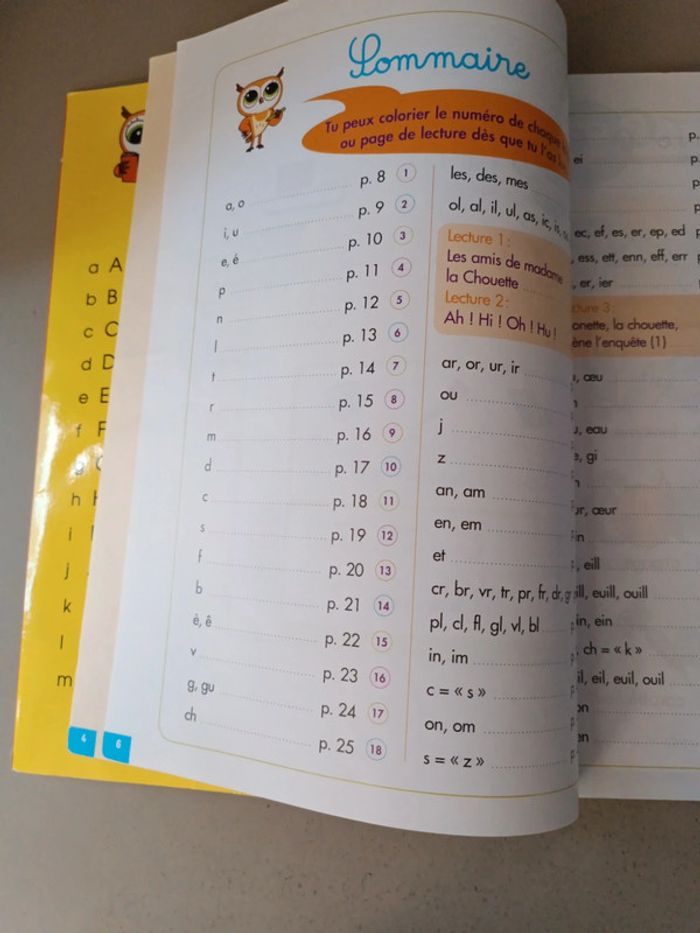 Sommaire
Tu peux colorier le numéro de chaque
ou page de lecture dès que tu l'as
a, o p. 8 1
i, u p. 9 2
e, é p. 10 3
p p. 11 4
n p. 12 5
l p. 13 6
t p. 14 7
r p. 15 8
m p. 16 9
d p. 17 10
c p. 18 11
s p. 19 12
f p. 20 13
b p. 21 14
è, ê p. 22 15
v p. 23 16
g, gu p. 24 17
ch p. 25 18
les, des, mes
ol, al, il, ul, as, ic, is,
Lecture 1 :
Les amis de madame
la Chouette
Lecture 2 :
Ah ! Hi ! Oh ! Hu !
ar, or, ur, ir
ou
j
z
an, am
en, em
et
cr, br, vr, tr, pr, fr, dr, gr
pl, cl, fl, gl, vl, bl
in, im
c = « s »
on, om
s = « z »
6
4
a A
b B
c C
d D
e E
f F
g
h
i
j
k
l
m
p.
ei p.
p
p
ec, ef, es, er, ep, ed p
ess, ett, enn, eff, err
, er, ier
3 :
la chouette,
l'enquête (1)
, œu
, eau
, gi
, œur
, eill
euill, ouill
in, ein
, ch = « k »
eil, euil, ouil